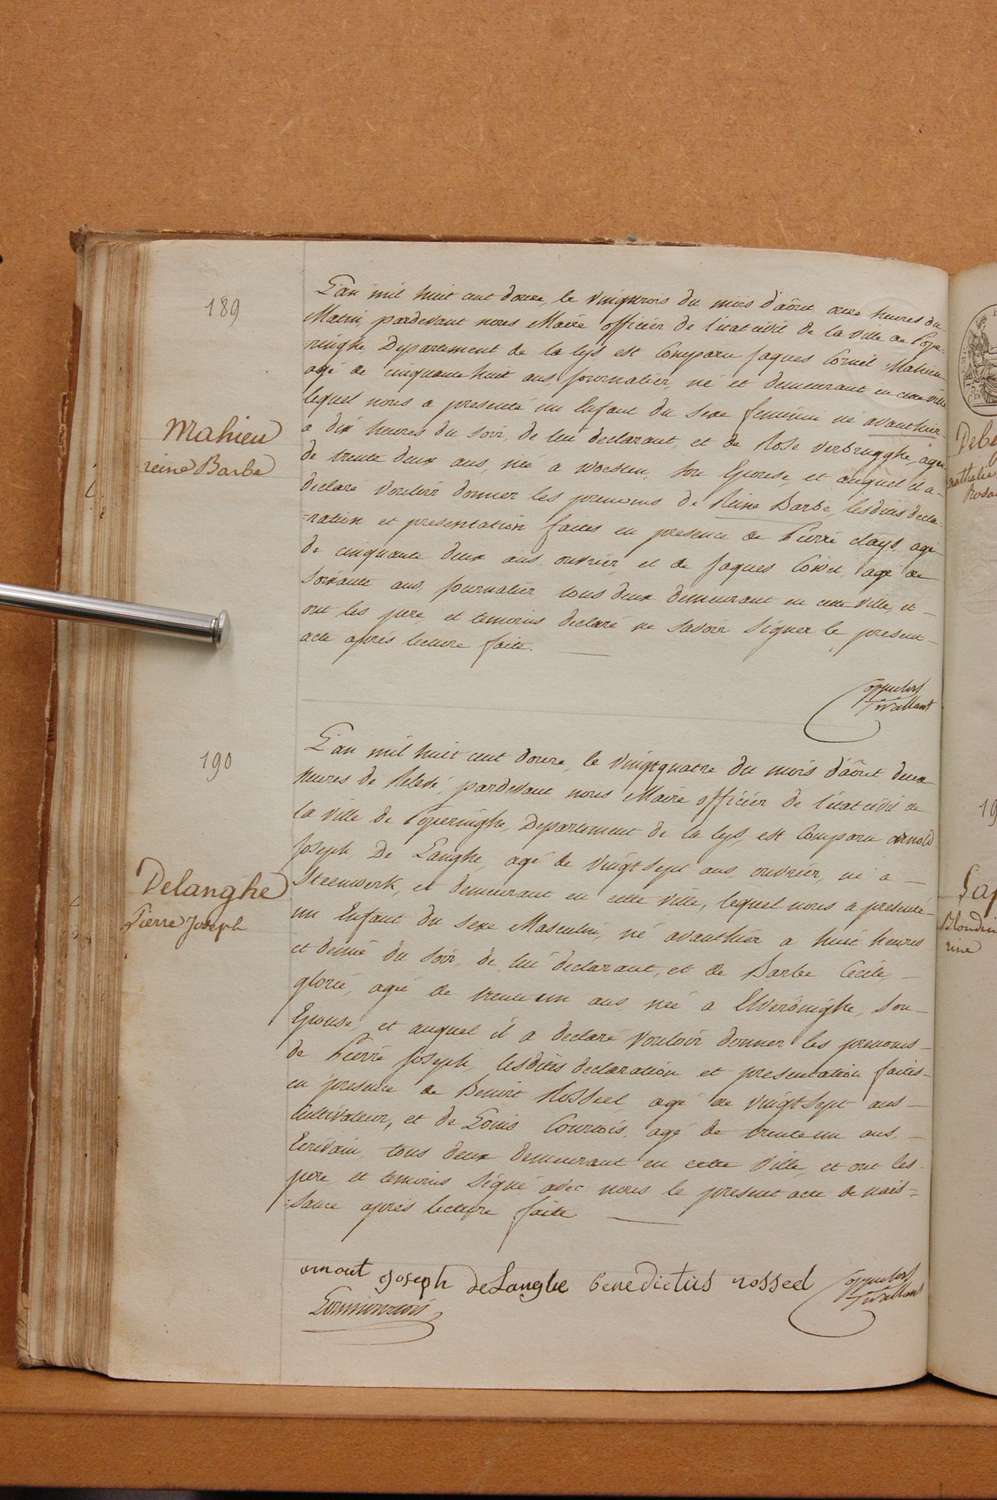 189
L'an mil huit cent douze, le vingttrois du mois d'aôut onze heures du
Matin, pardevant nous Maire officier de l'etat civil de la ville de Pope-
ringhe Departement de la Lys est Comparu Jaques Cornil Mahieu
agé de cinquante huit ans, journalier, né et demeurant en cette ville
lequel nous a presenté un Enfant du sexe feminin né avanthier
a dix heures du soir, de lui declarant et de Rose Verbrugghe, agée
de trente deux ans, née a Woesten, son Epouse, et auquel il a-
declaré vouloir donner les prenoms de Reine Barbe, lesdites decla-
Mahieu
reine Barbe
-ration et presentation faites en presence de Pierre Clays, agé-
de cinquante deux ans, ouvrier, et de Jaques agé de
soixante ans, journalier tous deux demeurant en cette ville et-
ont les pere et temoins declaré ne savoir signer le present-
acte après lecture faite.
190
L'an mil huit cent douze, le vingtquatre du mois d'aôut deux
heures de Relevé, pardevant nous Maire officier de l'etat civil de
la ville de Poperinghe, Departement de la Lys, est Comparu Arnold
Joseph De Langhe, agé de vingt sept ans, ouvrier, né a-
Steenwerk, et demeurant en cette ville, lequel nous a presenté-
Delanghe
Pierre Joseph
un Enfant du sexe Masculin, né avanthier a huit heures
et demie du soir, de lui declarant, et de Barbe Cécile-
glorie, agée de trente un ans, née a Elverdinghe, son-
Epouse, et auquel il a declaré vouloir donner les prenoms-
de Pierre Joseph, lesdites declaration et presentation faites-
en presence de Benoit Rosseel agé de vingt sept ans-
Cultivateur, et de Louis Courtois, agé de trente un ans,-
Ecrivain, tous deux demeurant en cette ville, et ont les-
pere et temoins signé avec nous le present acte de nais-
-sance après lecture faite
arnout Joseph deLanghe benedictus rossel